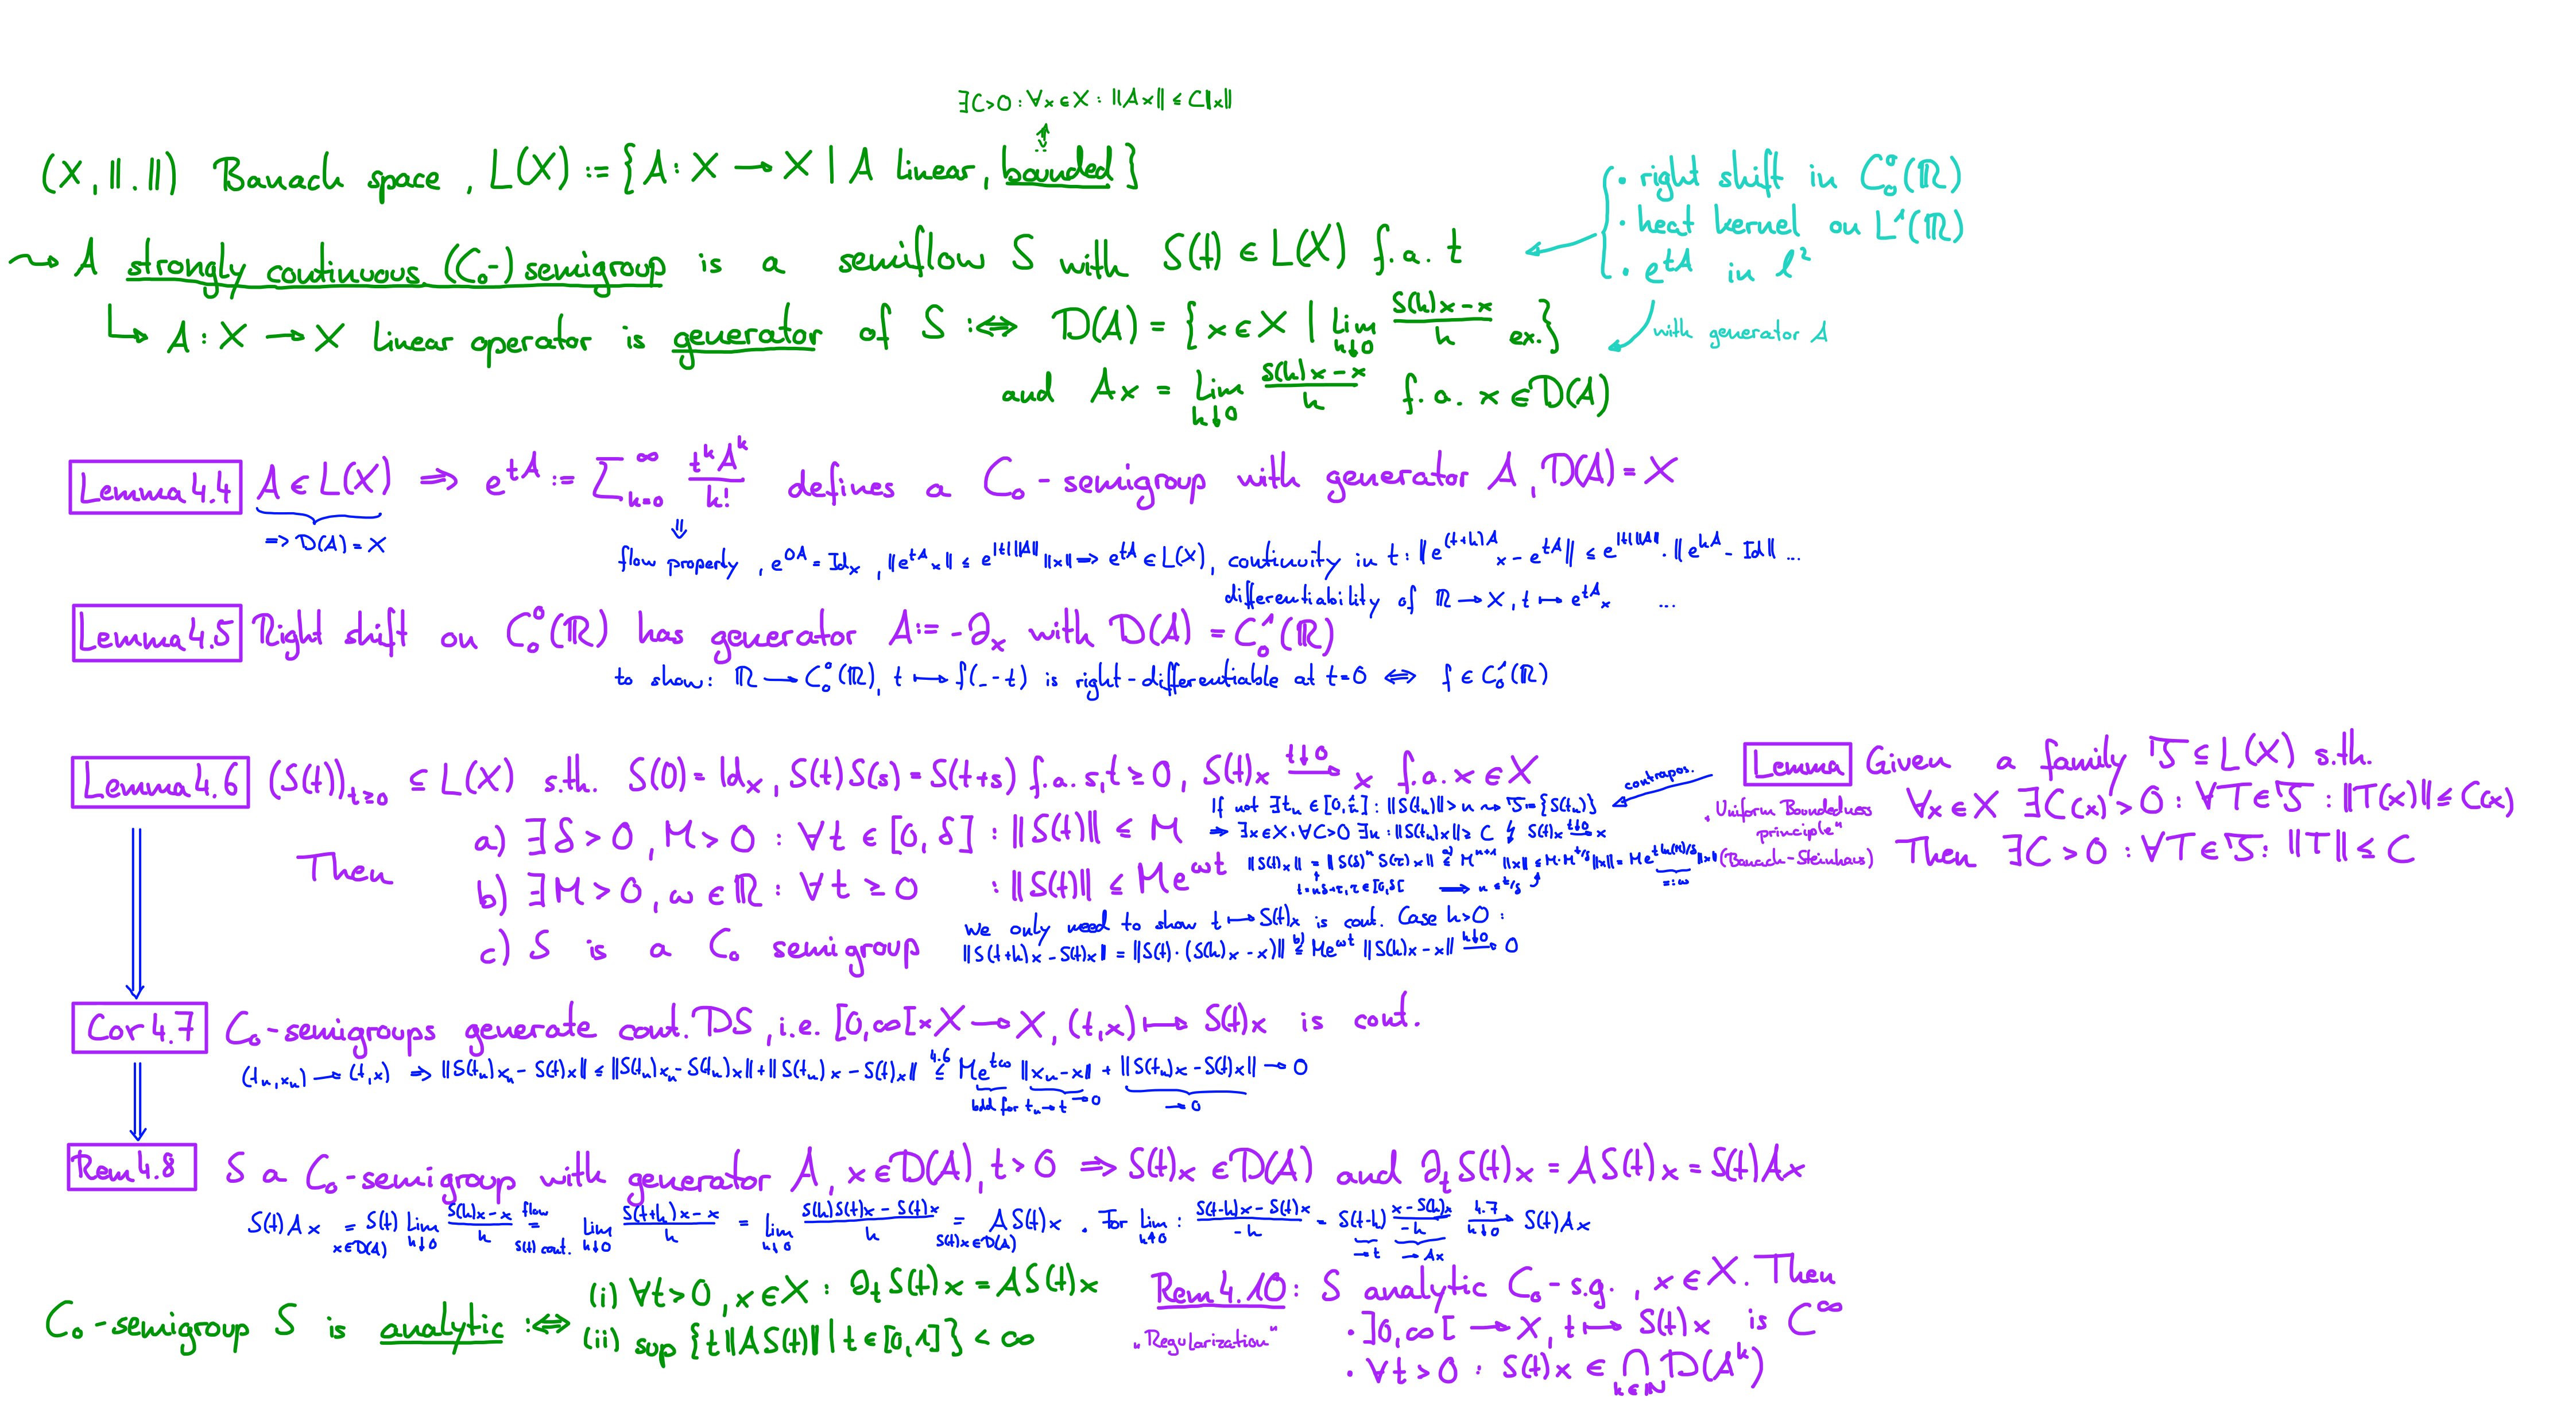 ∃C>0 : ∀x∈X : ||Ax|| ≤ C||x||
⇕
(X, ||.||) Banach space, L(X) := {A: X → X | A linear, bounded}
⇝ A strongly continuous (C₀-) semigroup is a semiflow S with S(t) ∈ L(X) f.a. t
• right shift in C₀⁰(ℝ)
• heat kernel on L¹(ℝ)
• e^{tA} in ℓ²
with generator A
↳ A: X → X linear operator is generator of S :⟺ D(A) = {x ∈ X | lim_{h↓0} (S(h)x - x)/h ex.}
and Ax = lim_{h↓0} (S(h)x - x)/h f.a. x ∈ D(A)
Lemma 4.4 A ∈ L(X) ⟹ e^{tA} := Σ_{k=0}^∞ t^k A^k / k! defines a C₀-semigroup with generator A, D(A) = X
=> D(A) = X
⇓
flow property, e^{0A} = Id_X, ||e^{tA}x|| ≤ e^{|t| ||A||} ||x|| => e^{tA} ∈ L(X), continuity in t: ||e^{(t+h)A}x - e^{tA}|| ≤ e^{|t| ||A||} · ||e^{hA} - Id|| ...
differentiability of ℝ → X, t ↦ e^{tA}x ...
Lemma 4.5 Right shift on C₀⁰(ℝ) has generator A := -∂ₓ with D(A) = C₀¹(ℝ)
to show: ℝ → C₀⁰(ℝ), t ↦ f(_-t) is right-differentiable at t=0 ⟺ f ∈ C₀¹(ℝ)
Lemma 4.6 (S(t))_{t≥0} ⊆ L(X) s.th. S(0) = Id_X, S(t)S(s) = S(t+s) f.a. s,t ≥ 0, S(t)x →^{t↓0} x f.a. x ∈ X
Then
a) ∃δ > 0, M > 0 : ∀t ∈ [0,δ] : ||S(t)|| ≤ M
If not ∃tₙ ∈ [0,1/n] : ||S(tₙ)|| > n ⇝ 𝒯 = {S(tₙ)}
⟹ ∃x∈X : ∀C>0 ∃n : ||S(tₙ)x|| ≥ C ↯ S(t)x →^{t↓0} x
b) ∃M > 0, ω ∈ ℝ : ∀t ≥ 0 : ||S(t)|| ≤ Me^{ωt}
||S(t)x|| = ||S(δ)ⁿ S(τ)x|| ≤^{a)} M^{n+1} ||x|| ≤ M·M^{t/δ} ||x|| = Me^{t ln(M)/δ} ||x||
t = nδ+τ, τ∈[0,δ[ ⟹ n ≤ t/δ
=: ω
c) S is a C₀ semigroup
We only need to show t ↦ S(t)x is cont. Case h>0 :
||S(t+h)x - S(t)x|| = ||S(t)·(S(h)x - x)|| ≤^{b)} Me^{ωt} ||S(h)x - x|| →^{h↓0} 0
contrapos.
Lemma Given a family 𝒯 ⊆ L(X) s.th.
∀x∈X ∃C(x) > 0 : ∀T∈𝒯 : ||T(x)|| ≤ C(x)
Then ∃C > 0 : ∀T∈𝒯 : ||T|| ≤ C
„Uniform Boundedness
principle"
(Banach-Steinhaus)
Cor 4.7 C₀-semigroups generate cont. DS, i.e. [0,∞[ × X → X, (t,x) ↦ S(t)x is cont.
(tₙ,xₙ) → (t,x) ⟹ ||S(tₙ)xₙ - S(t)x|| ≤ ||S(tₙ)xₙ - S(tₙ)x|| + ||S(tₙ)x - S(t)x|| ≤^{4.6} Me^{tω} ||xₙ-x|| + ||S(tₙ)x - S(t)x|| → 0
bdd for tₙ→t → 0 → 0
Rem 4.8 S a C₀-semigroup with generator A, x ∈ D(A), t > 0 ⟹ S(t)x ∈ D(A) and ∂ₜS(t)x = AS(t)x = S(t)Ax
S(t)Ax =_{x∈D(A)} S(t) lim_{h↓0} (S(h)x - x)/h =^{flow}_{S(t) cont.} lim_{h↓0} (S(t+h)x - x)/h = lim_{h↓0} (S(h)S(t)x - S(t)x)/h =_{S(t)x∈D(A)} AS(t)x . For lim_{h↑0} : (S(t-h)x - S(t)x)/(-h) = S(t-h) (x - S(h)x)/(-h) →^{4.7}_{h↓0} S(t)Ax
→ t → Ax
C₀-semigroup S is analytic :⟺
(i) ∀t>0, x∈X : ∂ₜS(t)x = AS(t)x
(ii) sup {t||AS(t)|| | t ∈ [0,1]} < ∞
Rem 4.10: S analytic C₀-s.g., x ∈ X. Then
„Regularization"
• ]0,∞[ → X, t ↦ S(t)x is C^∞
• ∀t > 0 : S(t)x ∈ ⋂_{k∈ℕ} D(A^k)